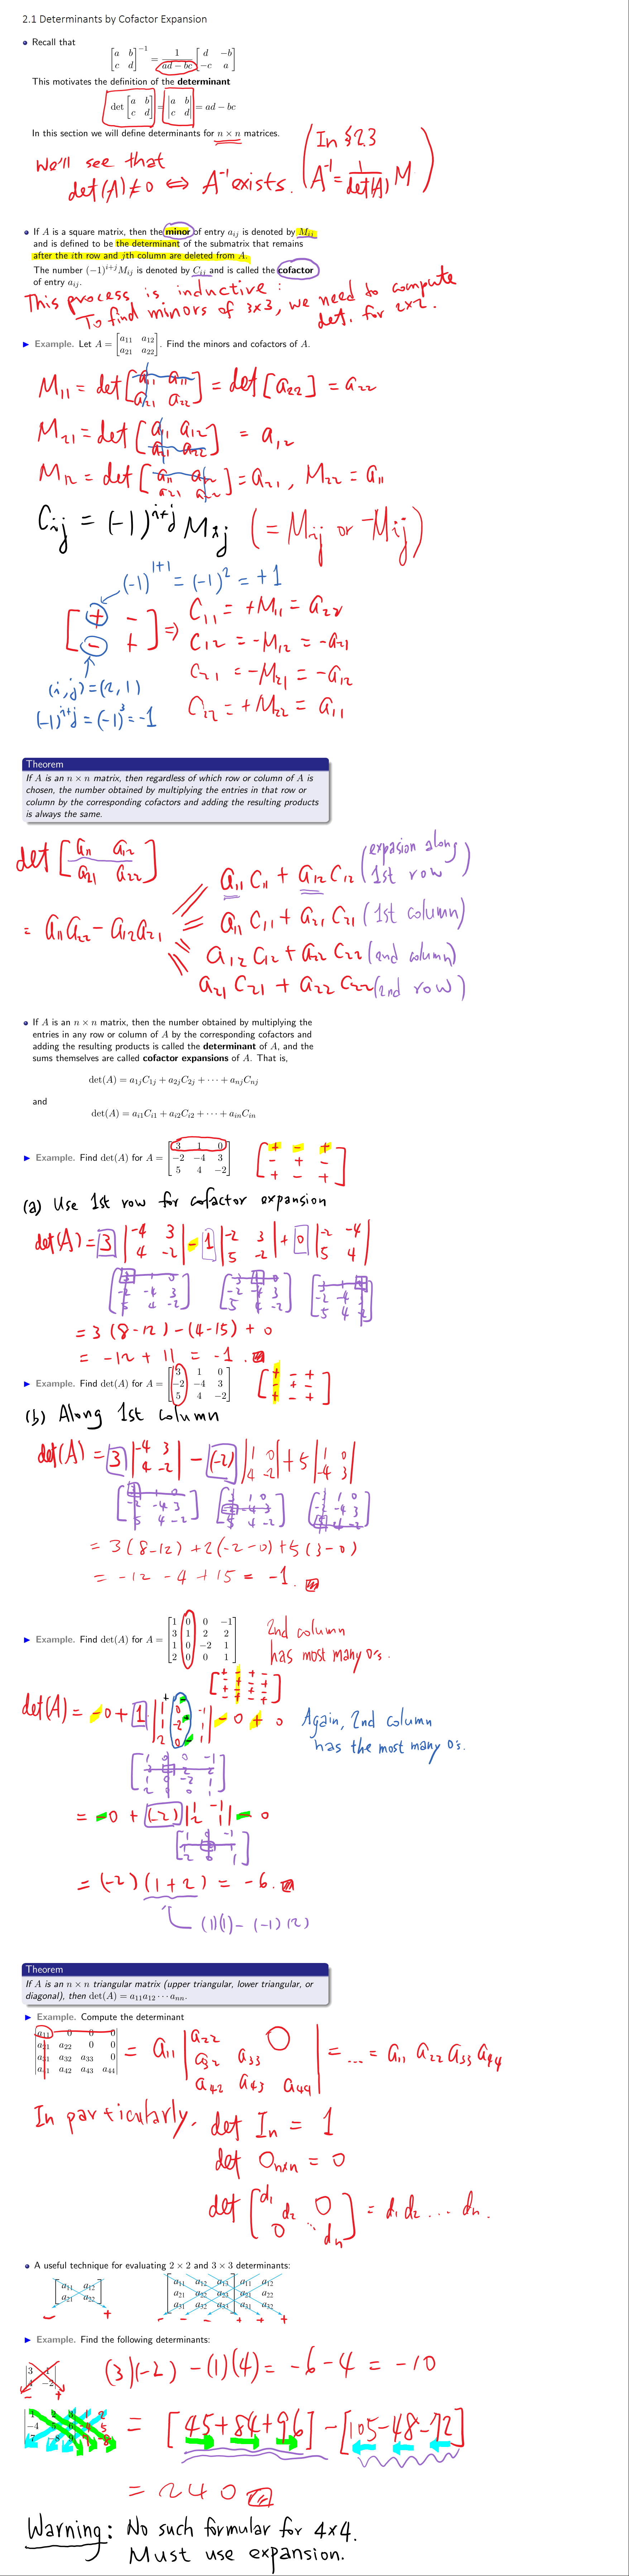 2.1 Determinants by Cofactor Expansion
• Recall that
[a b; c d]^{-1} = 1/(ad − bc) [d −b; −c a]
This motivates the definition of the determinant
det [a b; c d] = |a b; c d| = ad − bc
In this section we will define determinants for n × n matrices.
We'll see that
det(A) ≠ 0 ⇔ A⁻¹ exists. (In §2.3 A⁻¹ = 1/det(A) M)
• If A is a square matrix, then the minor of entry a_ij is denoted by M_ij
and is defined to be the determinant of the submatrix that remains
after the ith row and jth column are deleted from A.
The number (−1)^{i+j} M_ij is denoted by C_ij and is called the cofactor
of entry a_ij.
This process is inductive:
To find minors of 3x3, we need to compute
det. for 2x2.
▶ Example. Let A = [a11 a12; a21 a22]. Find the minors and cofactors of A.
M11 = det [a11 a12; a21 a22] = det [a22] = a22
M21 = det [a11 a12; a21 a22] = a12
M12 = det [a11 a12; a21 a22] = a21, M22 = a11
C_ij = (-1)^{i+j} M_ij (= M_ij or -M_ij)
(-1)^{1+1} = (-1)² = +1
[+ -; - +] ⇒ C11 = +M11 = a22
C12 = -M12 = -a21
C21 = -M21 = -a12
C22 = +M22 = a11
(i,j) = (2,1)
(-1)^{i+j} = (-1)³ = -1
Theorem
If A is an n × n matrix, then regardless of which row or column of A is
chosen, the number obtained by multiplying the entries in that row or
column by the corresponding cofactors and adding the resulting products
is always the same.
det [a11 a12; a21 a22]
= a11a22 - a12a21
= a11C11 + a12C12 (expasion along 1st row)
= a11C11 + a21C21 (1st column)
= a12C12 + a22C22 (2nd column)
= a21C21 + a22C22 (2nd row)
• If A is an n × n matrix, then the number obtained by multiplying the
entries in any row or column of A by the corresponding cofactors and
adding the resulting products is called the determinant of A, and the
sums themselves are called cofactor expansions of A. That is,
det(A) = a1jC1j + a2jC2j + ··· + anjCnj
and
det(A) = ai1Ci1 + ai2Ci2 + ··· + ainCin
▶ Example. Find det(A) for A = [3 1 0; −2 −4 3; 5 4 −2] [+ - +; - + -; + - +]
(a) Use 1st row for cofactor expansion
det(A) = 3 |-4 3; 4 -2| - 1 |-2 3; 5 -2| + 0 |-2 -4; 5 4|
[3 1 0; -2 -4 3; 5 4 -2] [3 1 0; -2 -4 3; 5 4 -2] [3 1 0; -2 -4 3; 5 4 -2]
= 3 (8-12) - (4-15) + 0
= -12 + 11 = -1.
▶ Example. Find det(A) for A = [3 1 0; −2 −4 3; 5 4 −2] [+ - +; - + -; + - +]
(b) Along 1st column
det(A) = 3 |-4 3; 4 -2| - (-2) |1 0; 4 -2| + 5 |1 0; -4 3|
[3 1 0; -2 -4 3; 5 4 -2] [3 1 0; -2 -4 3; 5 4 -2] [3 1 0; -2 -4 3; 5 4 -2]
= 3(8-12) + 2(-2-0) + 5(3-0)
= -12 - 4 + 15 = -1.
▶ Example. Find det(A) for A = [1 0 0 −1; 3 1 2 2; 1 0 −2 1; 2 0 0 1]
2nd column
has most many 0's.
[+ - + -; - + - +; + - + -; - + - +]
det(A) = -0 + 1 |1 0 -1; 1 -2 1; 2 0 1| - 0 + 0
Again, 2nd column
has the most many 0's.
[1 0 0 -1; 3 1 2 2; 1 0 -2 1; 2 0 0 1]
= -0 + (-2) |1 -1; 2 1| - 0
[1 0 -1; 1 -2 1; 2 0 1]
= (-2) (1+2) = -6.
(1)(1) - (-1)(2)
Theorem
If A is an n × n triangular matrix (upper triangular, lower triangular, or
diagonal), then det(A) = a11a22 ··· ann.
▶ Example. Compute the determinant
|a11 0 0 0; a21 a22 0 0; a31 a32 a33 0; a41 a42 a43 a44| = a11 |a22 0; a32 a33; a42 a43 a44| = ... = a11 a22 a33 a44
In particularly, det In = 1
det Onxn = 0
det [d1 0; d2; 0 ... dn] = d1 d2 ... dn.
• A useful technique for evaluating 2 × 2 and 3 × 3 determinants:
[a11 a12; a21 a22] [a11 a12 a13; a21 a22 a23; a31 a32 a33] a11 a12; a21 a22; a31 a32
- + - - - + + +
▶ Example. Find the following determinants:
|3 1; 4 −2| (3)(-2) - (1)(4) = -6 - 4 = -10
|1 2 3; −4 5 6; 7 −8 9| = [45+84+96] - [105-48-72]
= 240
Warning: No such formular for 4x4.
Must use expansion.